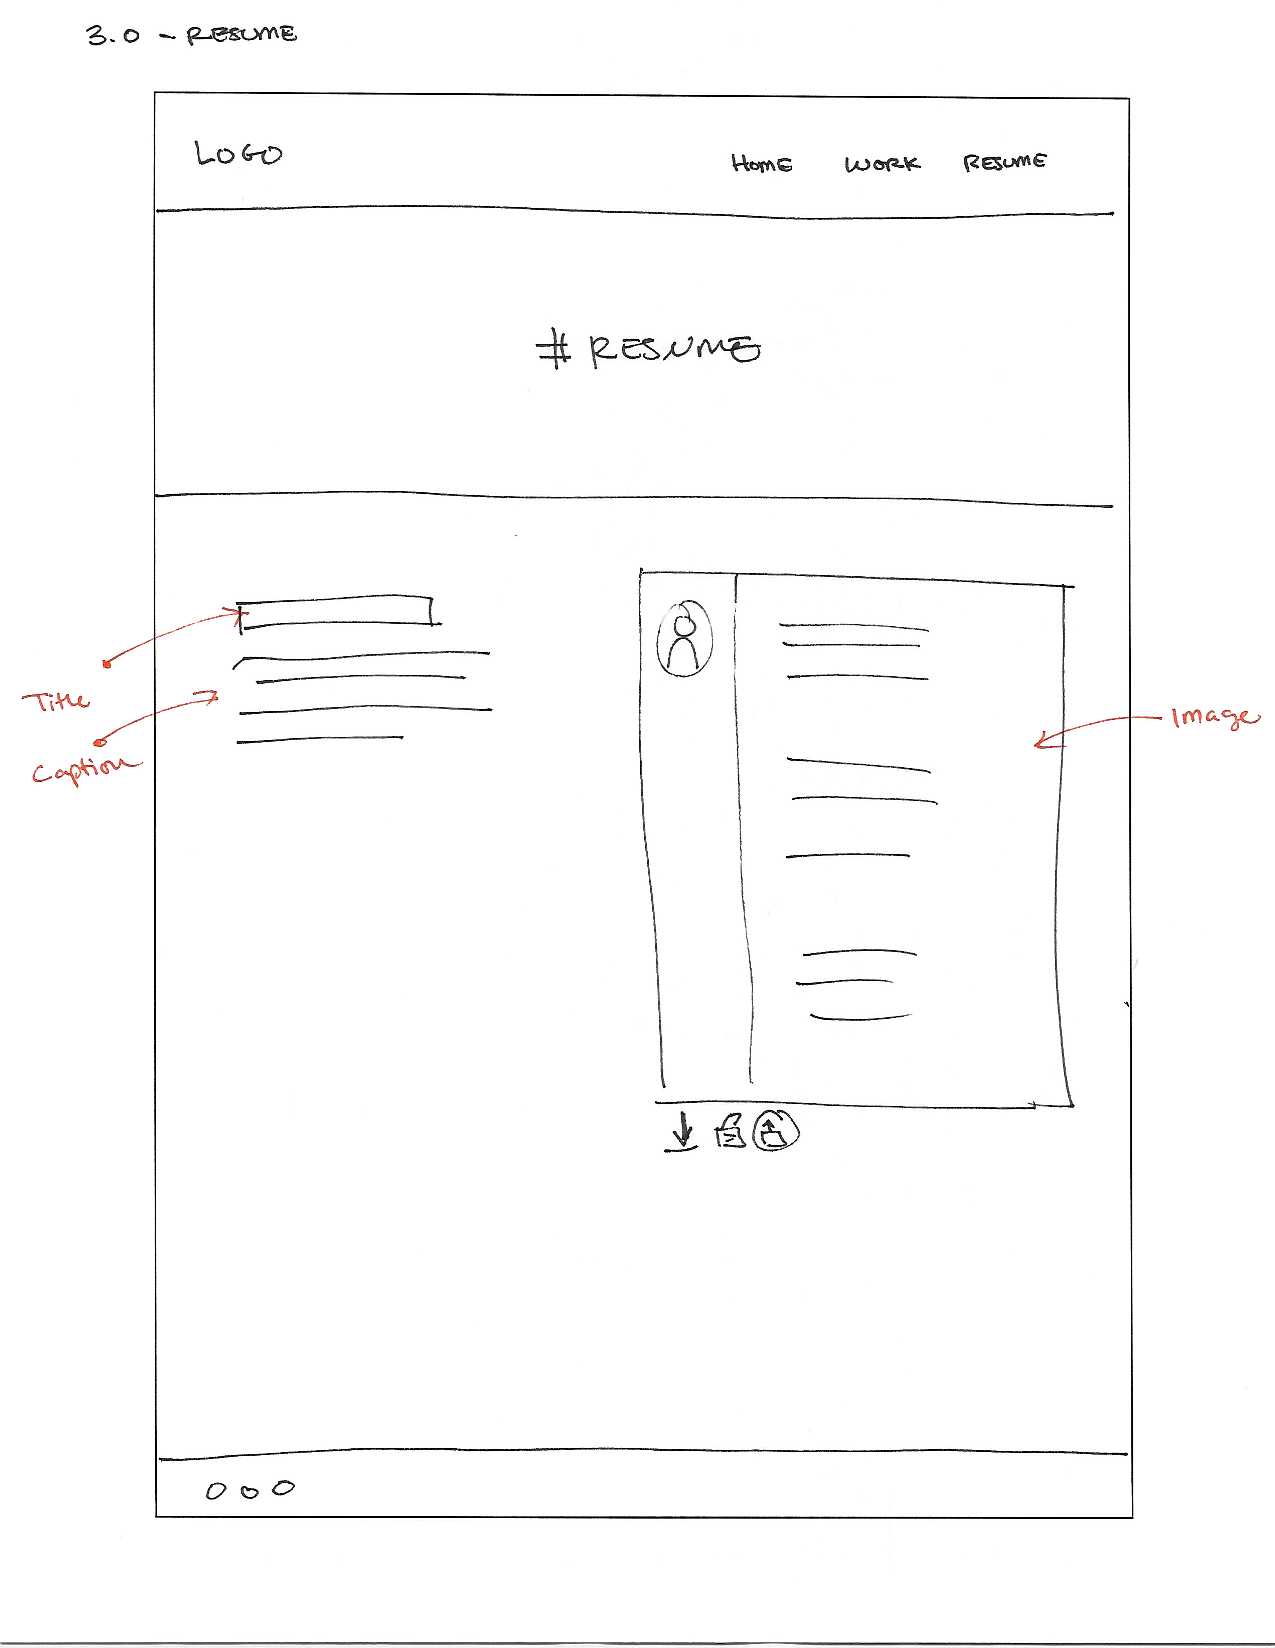 3.0 - RESUME
LOGO
HOME WORK RESUME
# RESUME
Title
Caption
Image